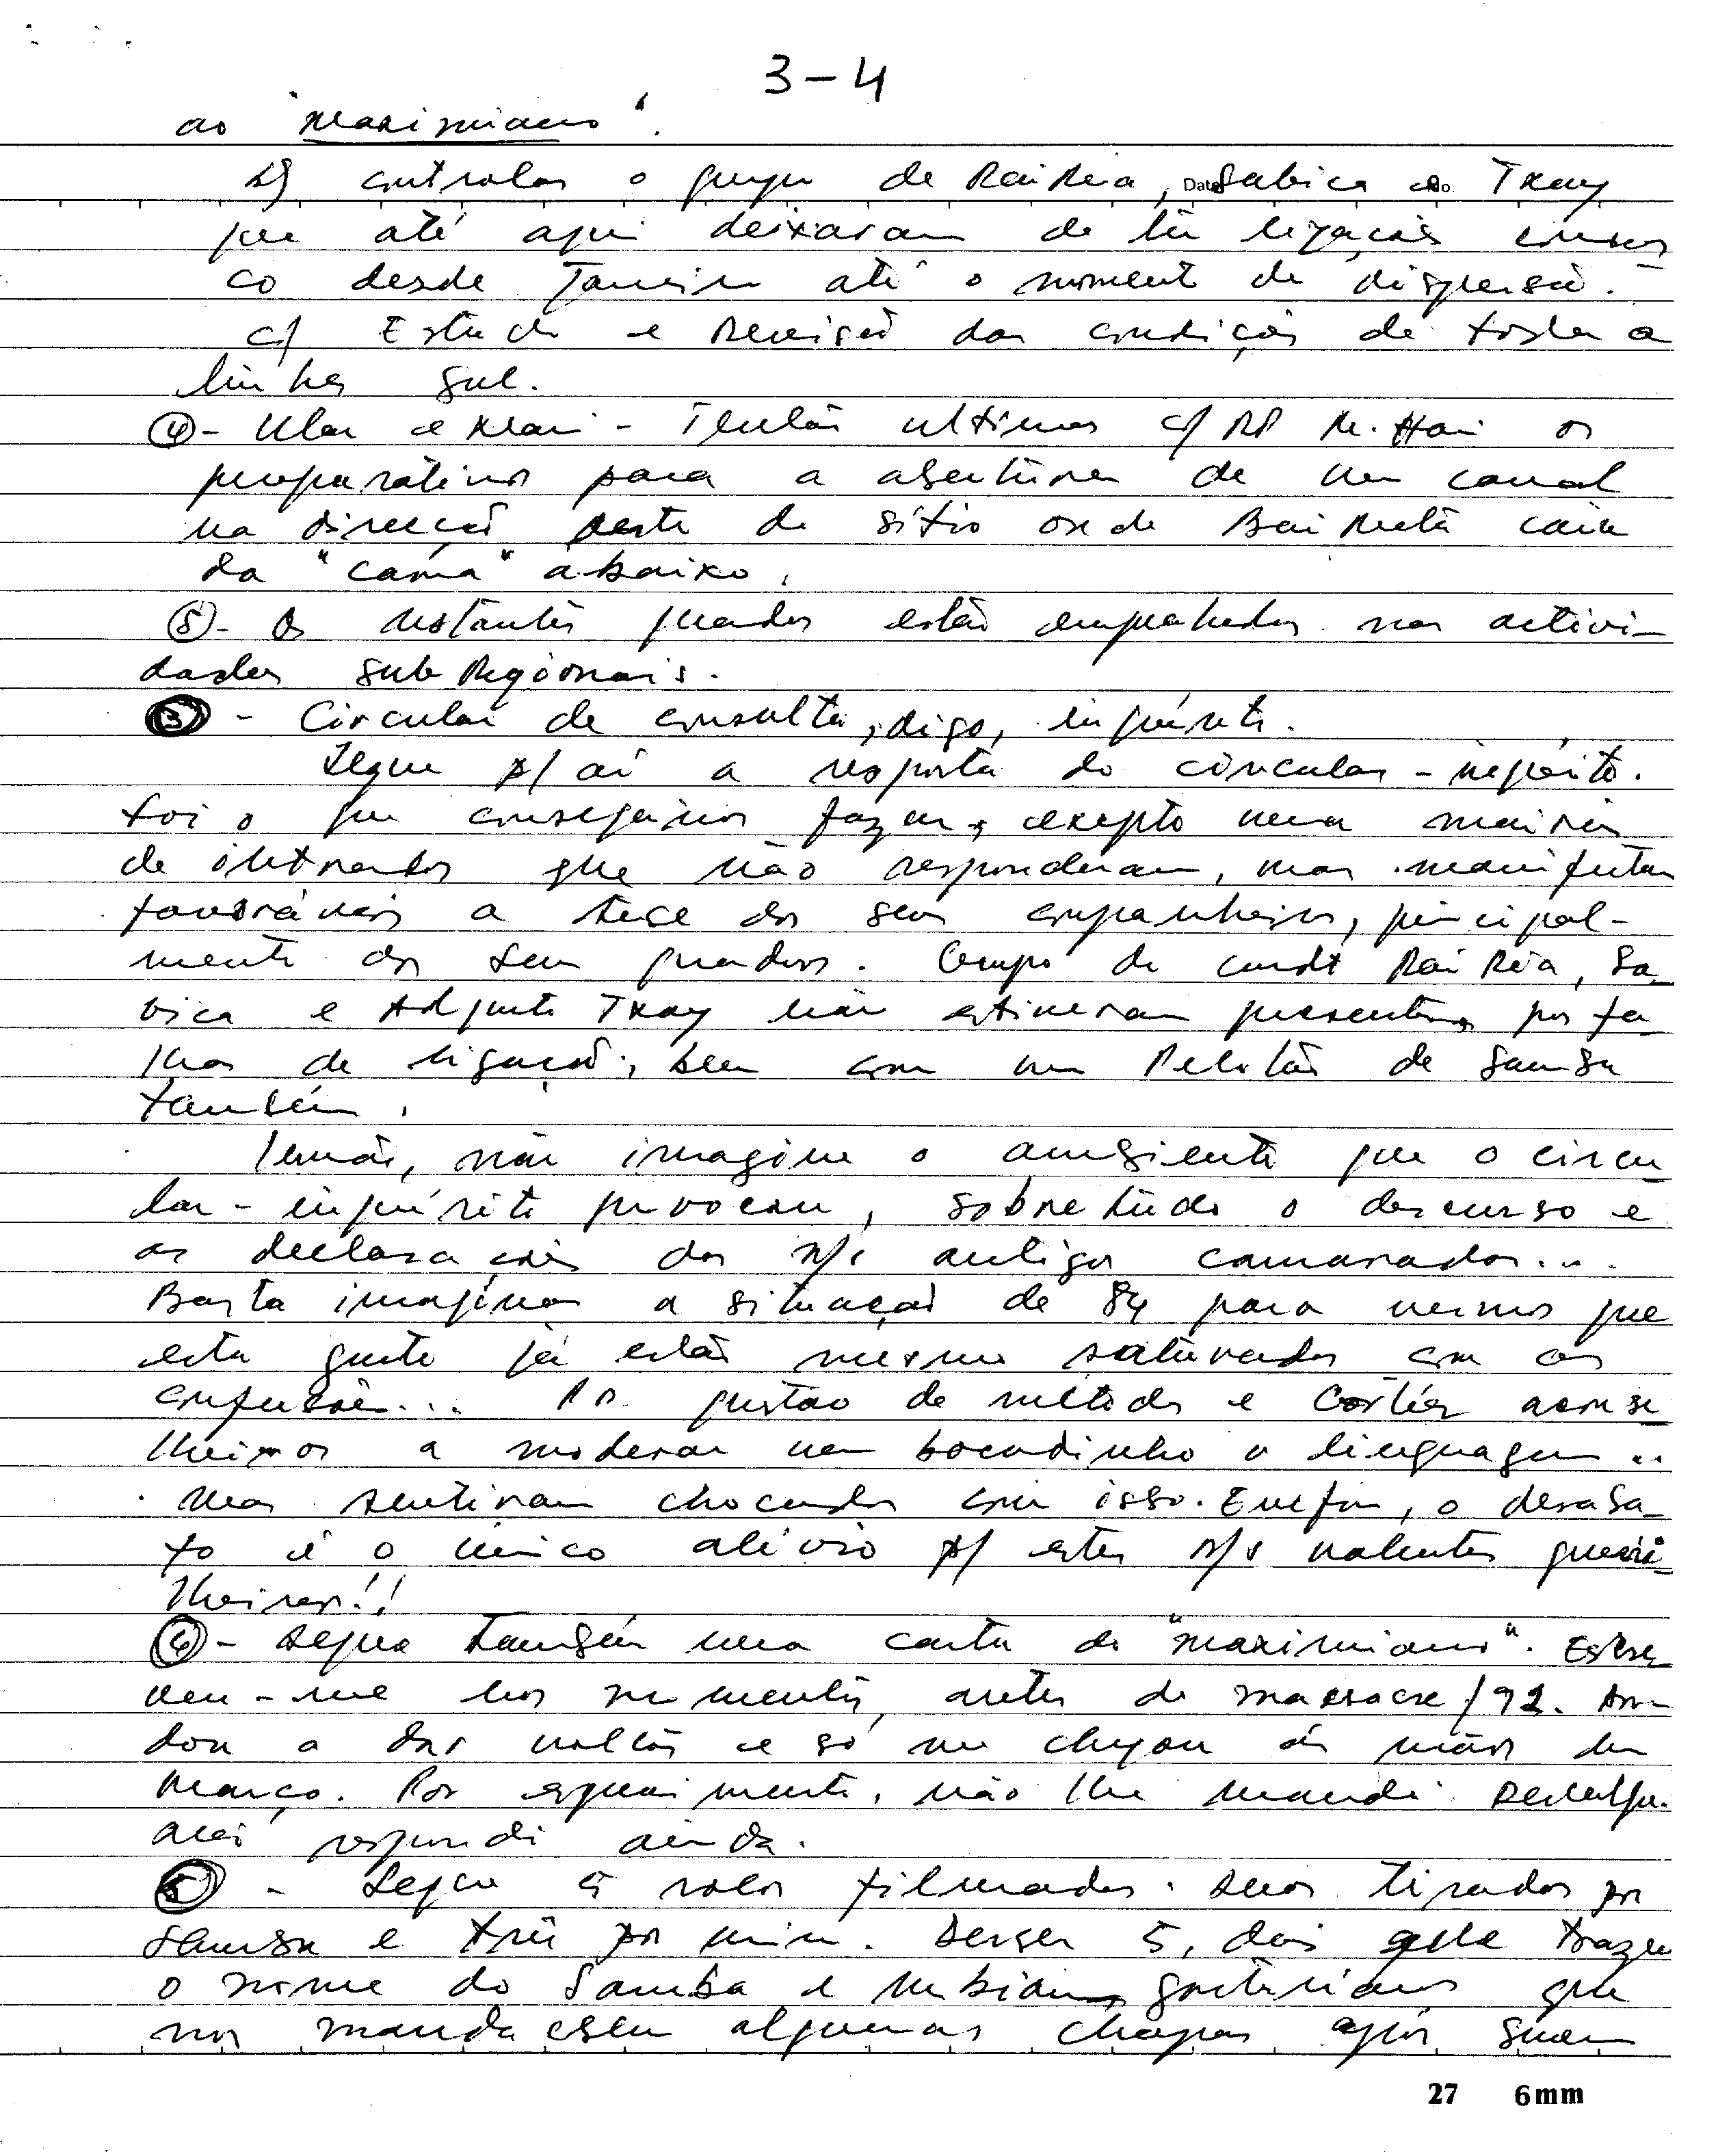 3-4
ao "Maximiano".
b) controlar o grupo de Rai Ria, Date Sabica e No. Txay
que até aqui deixaram de ter ligações connos
co desde Janeiro até o momento de dispersão.
c) Estudo e Revisão das condições de toda a
linha sul.
④- Ular e Klari - Tentar ultimar c/ RP M. Hari os
preparativos para a abertura de um canal
na direcção deste do sítio onde Bui Metà caiu
da "cama" abaixo.
⑤- Os restantes quadros estão empenhados nas activi-
dades subRegionais.
③ - Circular de consulta, digo, inquérito.
Segue p/ aí a resposta do circular-inquérito.
Foi o que conseguimos fazer, excepto uma maioria
de iletrados que não responderam, mas manifestam
favoráveis a tese dos seus companheiros, principal-
mente dos seus quadros. Grupo de cmdt Rai Ria, Sa-
bica e Adjunto Txay não estiveram presentes, por fa-
lhas de ligação, bem como um Pelotão de Samba
também.
Irmão, não imagine o ambiente que o circu
lar-inquérito provocou, sobretudo o discurso e
as declarações dos n/s antigos camaradas...
Basta imaginar a situação de 84 para vermos que
esta gente já estão mesmo saturados com as
confusões... Por questão de método e Cortez aconse
lhámos a moderar um bocadinho a linguagem..
Mas sentiram chocados com isso. Enfim, o desaba-
fo é o único alívio p/ estes n/s valentes guerri-
lheiros!!
④- Segue também uma carta do "Maximiano". Escre
veu-me nos momentos antes do massacre/92. An-
dou a dar voltas e só me chegou às mãos em
Março. Por esquecimento, não lhe mandei. Desculpe.
respondi ainda.
⑤ - Segue 5 rolos filmados. Dois tirados por
Samba e três por mim. Desses 5, dois que trazem
o nome do Samba e Ubiam, gostaríamos que
nos mandassem algumas chapas após suas
27 6mm